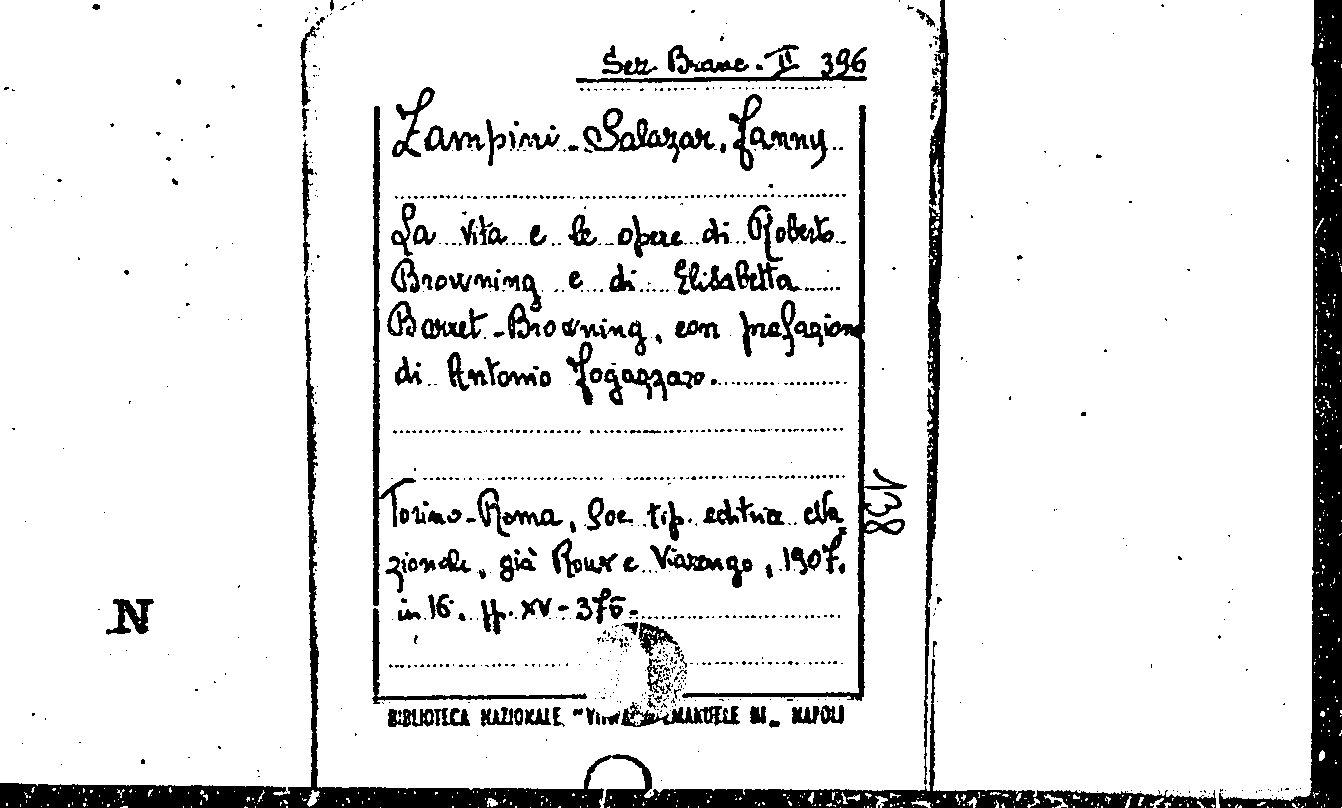 Sez. Branc. II 396
Zampini-Salazar, Fanny
La vita e le opere di Roberto
Browning e di Elisabetta
Barret-Browning, con prefazione
di Antonio Fogazzaro.
Torino-Roma, Soc. tip. editrice Na-
zionale, già Roux e Viarengo, 1907.
in 16. pp. XV-376.
138
N
BIBLIOTECA NAZIONALE "VITTORIO EMANUELE III" NAPOLI